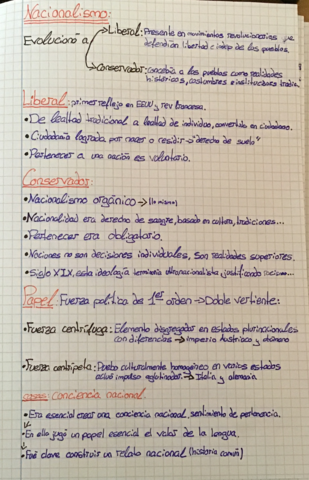 Nacionalismo:
Evolucionó a
→Liberal: Presente en movimientos revolucionarios que
defendían libertad e indep de los pueblos.
→Conservador: concebía a los pueblos como realidades
históricas, costumbres e instituciones tradic.
Liberal: primer reflejo en EEUU y rev francesa.
•De lealtad tradicional a lealtad de individuo, convertido en ciudadano.
•Ciudadanía lograda por nacer o residir→"derecho de suelo"
•Pertenecer a una nación es voluntario.
Conservador:
•Nacionalismo orgánico→(lo mismo)
•Nacionalidad era derecho de sangre, basado en cultura, tradiciones...
•Pertenecer era obligatorio.
•Naciones no son decisiones individuales, son realidades superiores.
•Siglo XIX, esta ideología terminaría ultranacionalista, justificando racismo...
Papel: Fuerza política de 1er orden→Doble vertiente:
•Fuerza centrífuga: Elemento disgregador en estados plurinacionales
con diferencias→imperio Austriaco y otomano
•Fuerza centrípeta: Pueblo culturalmente homogéneo en varios estados
actuó impulso aglutinador.→Italia y alemania
Conciencia nacional.
•Era esencial crear una conciencia nacional, sentimiento de pertenencia.
•En ello jugó un papel esencial el valor de la lengua.
•Fue clave construir un relato nacional (historia común)